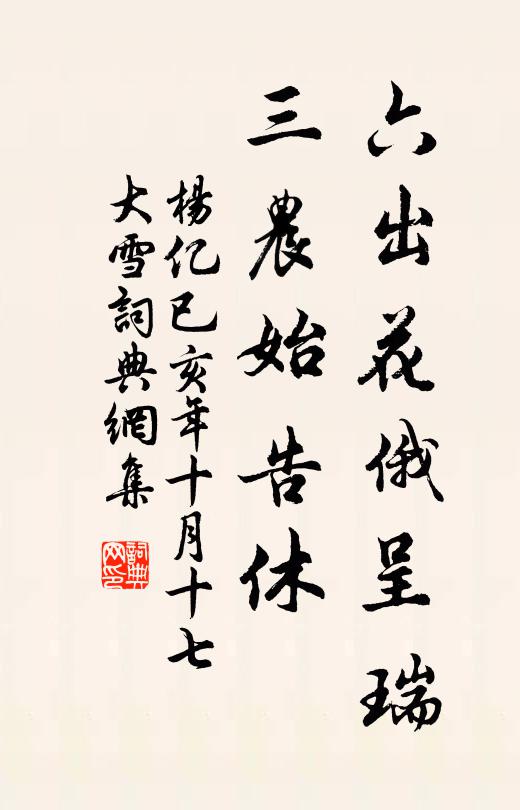 六出花俄呈瑞
三農始告休
楊亿己亥年十月十七
大雪詞典網集
詞典
网印